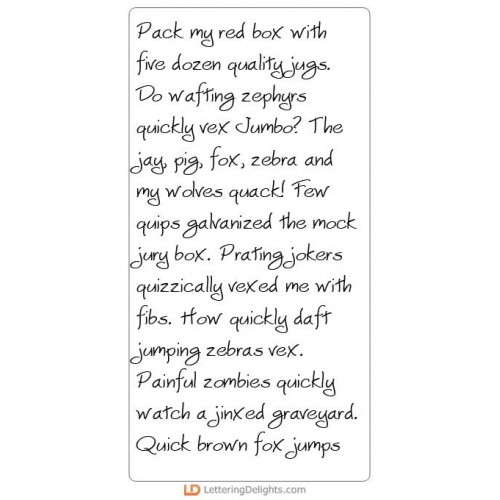 Pack my red box with
five dozen quality jugs.
Do wafting zephyrs
quickly vex Jumbo? The
jay, pig, fox, zebra and
my wolves quack! Few
quips galvanized the mock
jury box. Prating jokers
quizzically vexed me with
fibs. How quickly daft
jumping zebras vex.
Painful zombies quickly
watch a jinxed graveyard.
Quick brown fox jumps
LD LetteringDelights.com